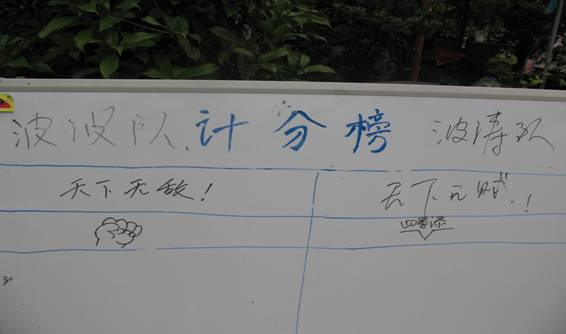 波波队 计分榜 波涛队
天下无敌! 天下无贼!